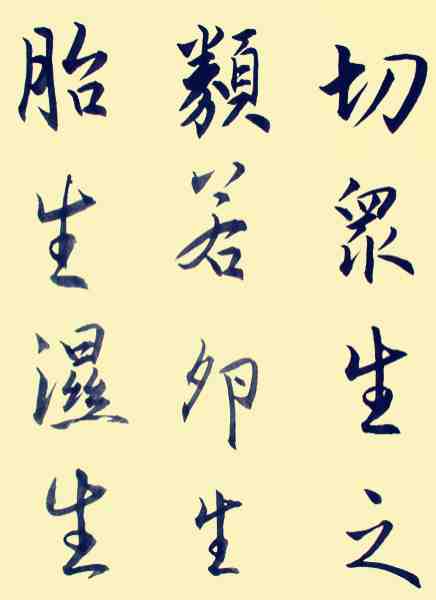 切眾生之
類若卵生
胎生濕生